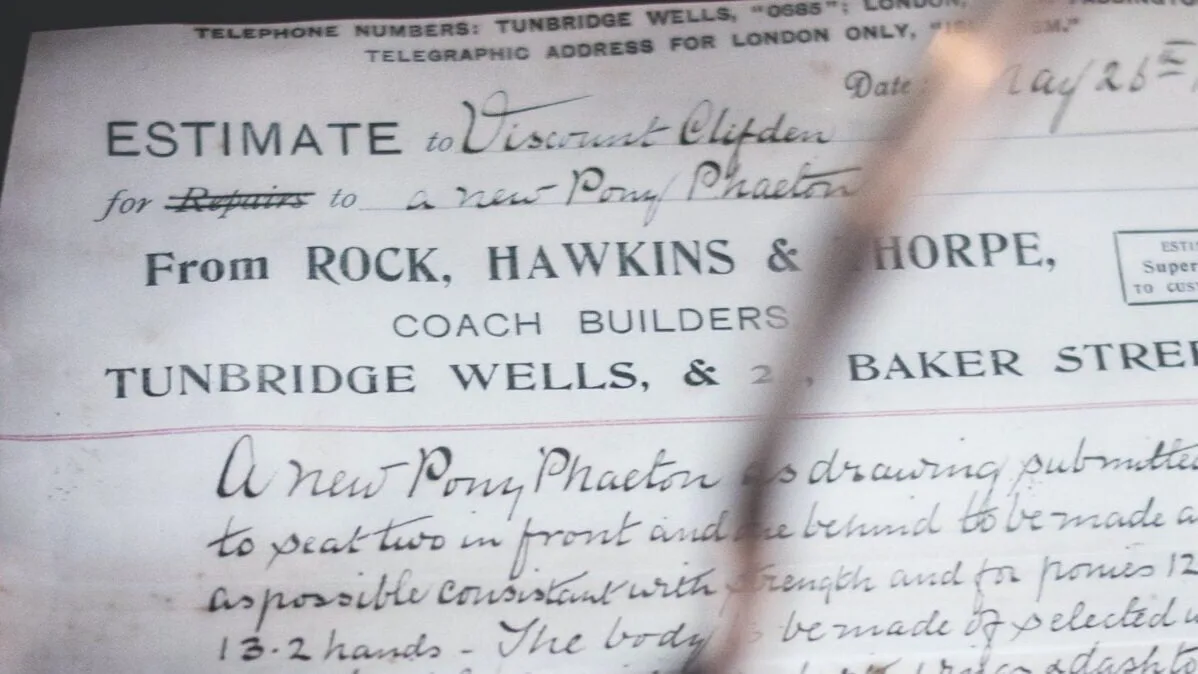 TELEPHONE NUMBERS: TUNBRIDGE WELLS, "0685"; LONDON,
TELEGRAPHIC ADDRESS FOR LONDON ONLY,
Date May 26th
ESTIMATE to Viscount Clifden
for Repairs to a new Pony Phaeton
From ROCK, HAWKINS & THORPE,
COACH BUILDERS
TUNBRIDGE WELLS, & BAKER STREE
A new Pony Phaeton as drawing submitte
to seat two in front and one behind to be made a
as possible consistant with strength and for ponies 12
13.2 hands - The body be made of selected
dash to